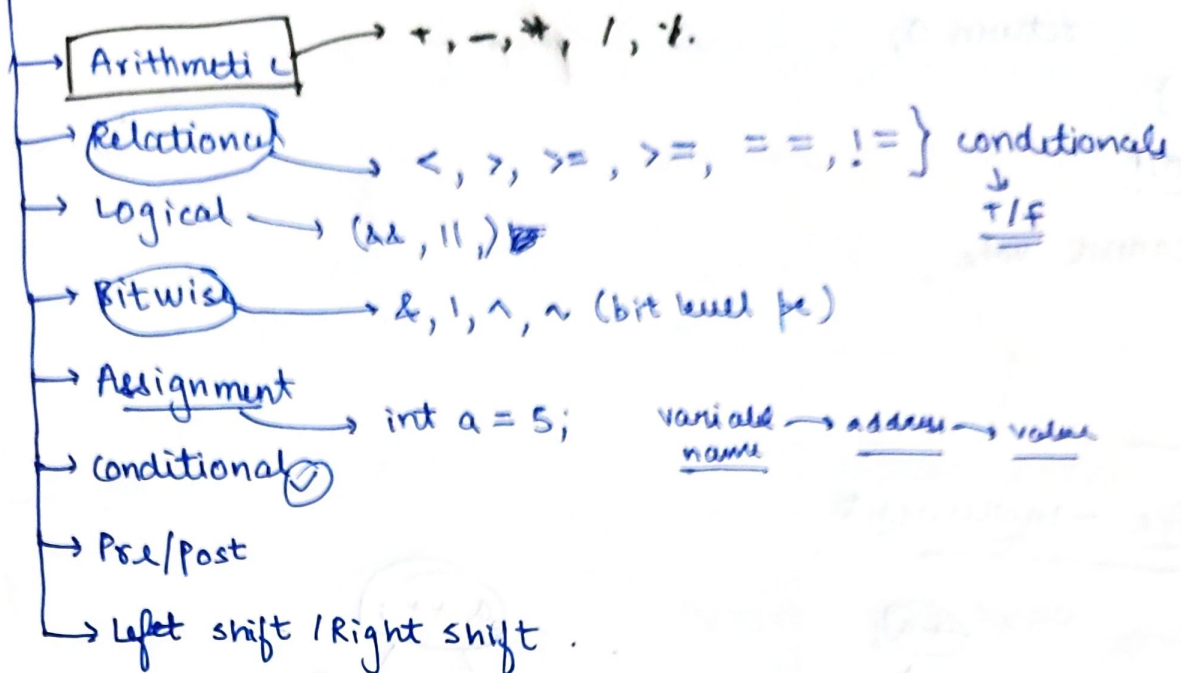 Arithmetic → +, -, *, /, %.
Relational → <, >, >=, >=, ==, != } conditionals
↓
T/F
Logical → (&&, ||,)
Bitwise → &, |, ^, ~ (bit level pe)
Assignment
→ int a = 5; variable name → address → value
Conditional
Pre/Post
Left shift / Right shift.